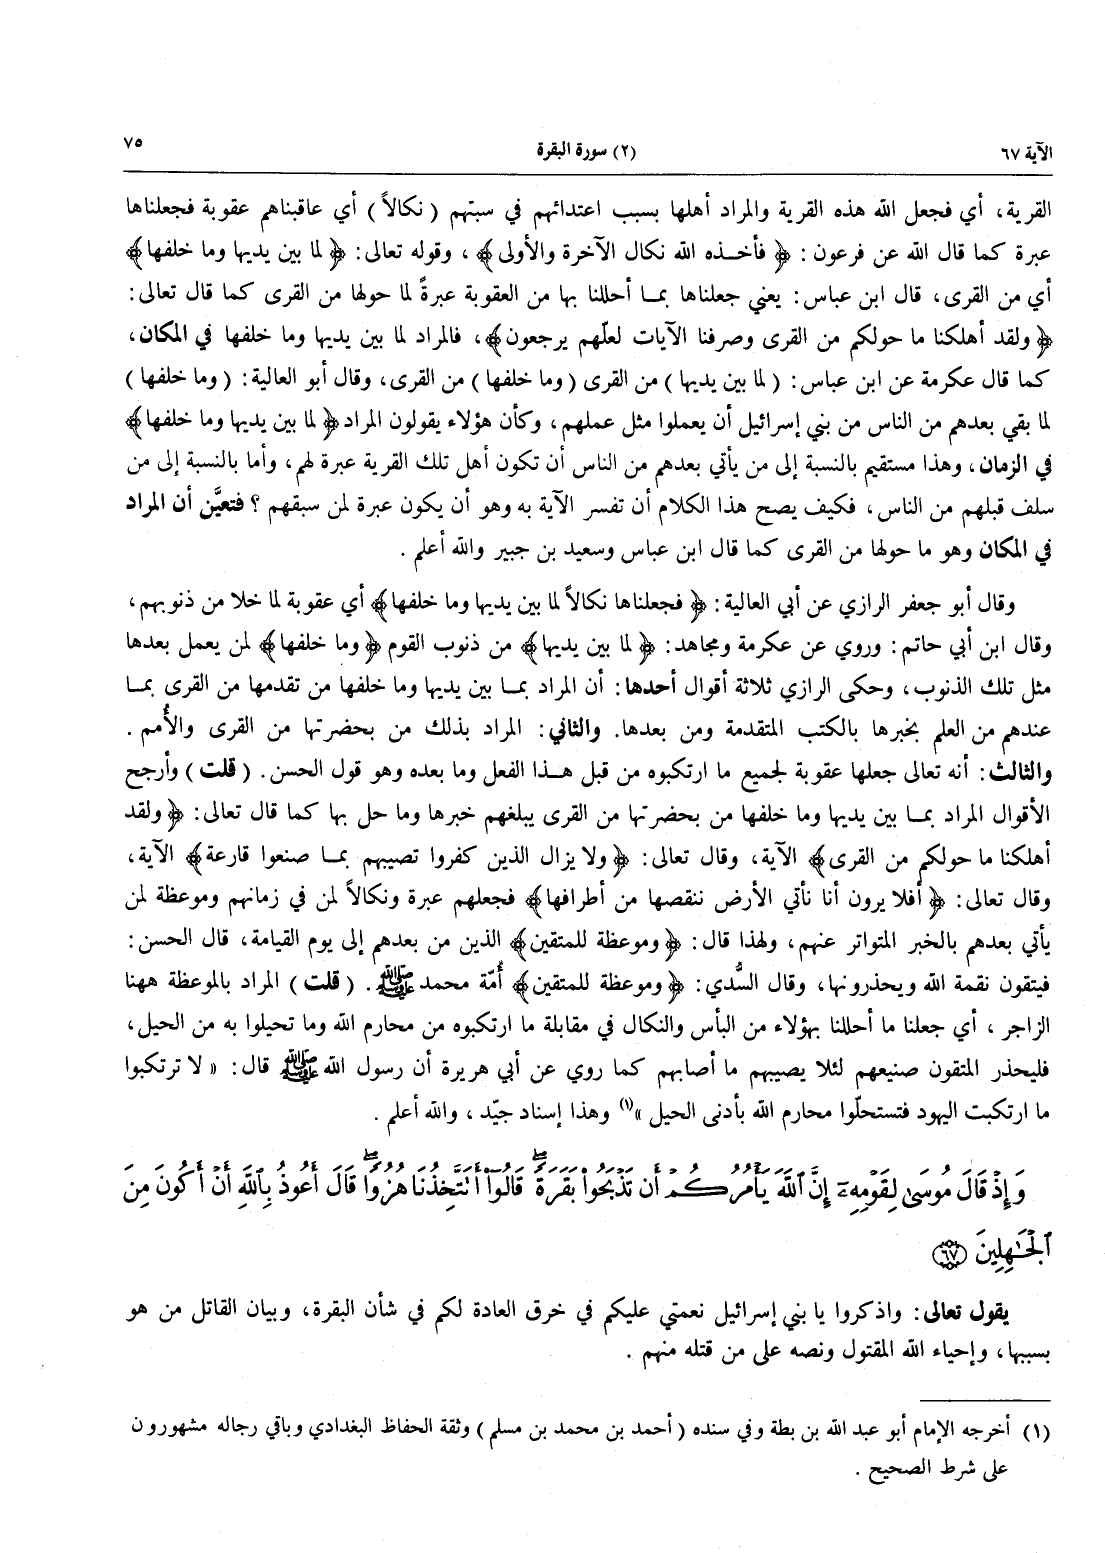 الآية ٦٧ (٢) سورة البقرة ٧٥
القرية، أي فجعل الله هذه القرية والمراد أهلها بسبب اعتدائهم في سبتهم ( نكالاً ) أي عاقبناهم عقوبة فجعلناها
عبرة كما قال الله عن فرعون : ﴿ فأخذه الله نكال الآخرة والأولى﴾ ، وقوله تعالى: ﴿ لما بين يديها وما خلفها﴾
أي من القرى، قال ابن عباس: يعني جعلناها بما أحللنا بها من العقوبة عبرةً لما حولها من القرى كما قال تعالى:
﴿ ولقد أهلكنا ما حولكم من القرى وصرفنا الآيات لعلّهم يرجعون﴾، فالمراد لما بين يديها وما خلفها في المكان،
كما قال عكرمة عن ابن عباس: ( لما بين يديها ) من القرى ( وما خلفها ) من القرى، وقال أبو العالية: ( وما خلفها )
لما بقي بعدهم من الناس من بني إسرائيل أن يعملوا مثل عملهم، وكأن هؤلاء يقولون المراد ﴿ لما بين يديها وما خلفها﴾
في الزمان، وهذا مستقيم بالنسبة إلى من يأتي بعدهم من الناس أن تكون أهل تلك القرية عبرة لهم، وأما بالنسبة إلى من
سلف قبلهم من الناس، فكيف يصح هذا الكلام أن تفسر الآية به وهو أن يكون عبرة لمن سبقهم ؟ فتعيَّن أن المراد
في المكان وهو ما حولها من القرى كما قال ابن عباس وسعيد بن جبير والله أعلم .
وقال أبو جعفر الرازي عن أبي العالية: ﴿ فجعلناها نكالاً لما بين يديها وما خلفها﴾ أي عقوبة لما خلا من ذنوبهم،
وقال ابن أبي حاتم: وروي عن عكرمة ومجاهد: ﴿ لما بين يديها﴾ من ذنوب القوم ﴿وما خلفها﴾ لمن يعمل بعدها
مثل تلك الذنوب، وحكى الرازي ثلاثة أقوال أحدها: أن المراد بما بين يديها وما خلفها من تقدمها من القرى بما
عندهم من العلم بخبرها بالكتب المتقدمة ومن بعدها. والثاني: المراد بذلك من بحضرتها من القرى والأُمم .
والثالث: أنه تعالى جعلها عقوبة لجميع ما ارتكبوه من قبل هذا الفعل وما بعده وهو قول الحسن. ( قلت ) وأرجح
الأقوال المراد بما بين يديها وما خلفها من بحضرتها من القرى يبلغهم خبرها وما حل بها كما قال تعالى: ﴿ ولقد
أهلكنا ما حولكم من القرى﴾ الآية، وقال تعالى: ﴿ ولا يزال الذين كفروا تصيبهم بما صنعوا قارعة﴾ الآية،
وقال تعالى: ﴿ أفلا يرون أنا نأتي الأرض ننقصها من أطرافها﴾ فجعلهم عبرة ونكالاً لمن في زمانهم وموعظة لمن
يأتي بعدهم بالخبر المتواتر عنهم، ولهذا قال: ﴿ وموعظة للمتقين﴾ الذين من بعدهم إلى يوم القيامة، قال الحسن:
فيتقون نقمة الله ويحذرونها، وقال السُّدي: ﴿ وموعظة للمتقين﴾ أُمّة محمد ﷺ. ( قلت ) المراد بالموعظة ههنا
الزاجر ، أي جعلنا ما أحللنا بهؤلاء من البأس والنكال في مقابلة ما ارتكبوه من محارم الله وما تحيلوا به من الحيل،
فليحذر المتقون صنيعهم لئلا يصيبهم ما أصابهم كما روي عن أبي هريرة أن رسول الله ﷺ قال: « لا ترتكبوا
ما ارتكبت اليهود فتستحلّوا محارم الله بأدنى الحيل »(١) وهذا إسناد جيّد ، والله أعلم .
وَإِذْ قَالَ مُوسَىٰ لِقَوْمِهِۦٓ إِنَّ ٱللَّهَ يَأْمُرُكُمْ أَن تَذْبَحُوا۟ بَقَرَةً ۖ قَالُوٓا۟ أَتَتَّخِذُنَا هُزُوًا ۖ قَالَ أَعُوذُ بِٱللَّهِ أَنْ أَكُونَ مِنَ
ٱلْجَـٰهِلِينَ ﴿٦٧﴾
يقول تعالى: واذكروا يا بني إسرائيل نعمتي عليكم في خرق العادة لكم في شأن البقرة، وبيان القاتل من هو
بسببها، وإحياء الله المقتول ونصه على من قتله منهم .
(١) أخرجه الإمام أبو عبد الله بن بطة وفي سنده ( أحمد بن محمد بن مسلم ) وثقة الحفاظ البغدادي وباقي رجاله مشهورون
على شرط الصحيح .